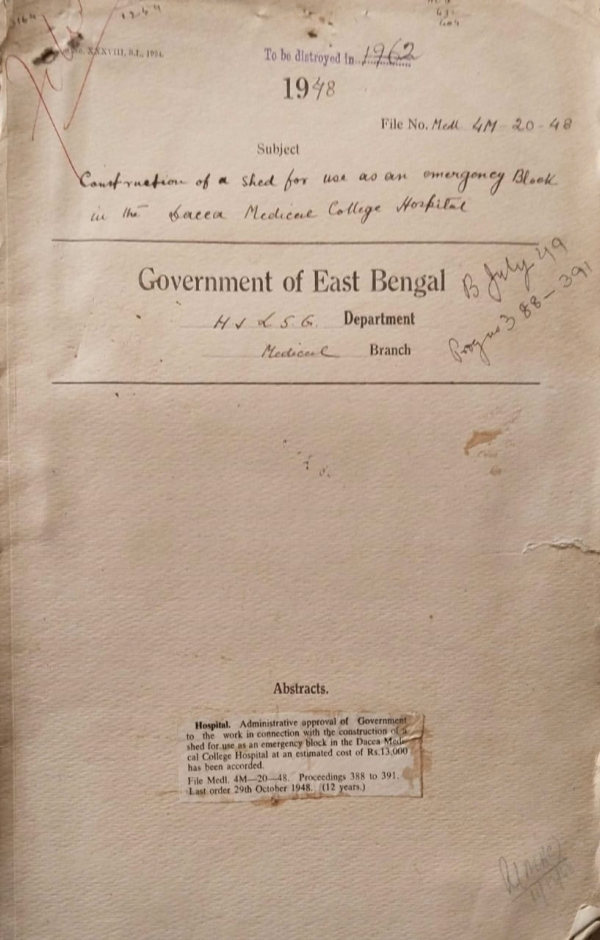 To be distroyed in 1962
1948
File No. Medl 4M-20-48
Subject
Construction of a shed for use as an emergency Block
in the Dacca Medical College Hospital
Government of East Bengal
B July 49
Department
Progs no 388-391
Medical Branch
Abstracts.
Hospital. Administrative approval of Government
to the work in connection with the construction of a
shed for use as an emergency block in the Dacca Medi-
cal College Hospital at an estimated cost of Rs.13,000
has been accorded.
File Medl. 4M—20—48. Proceedings 388 to 391.
Last order 29th October 1948. (12 years.)